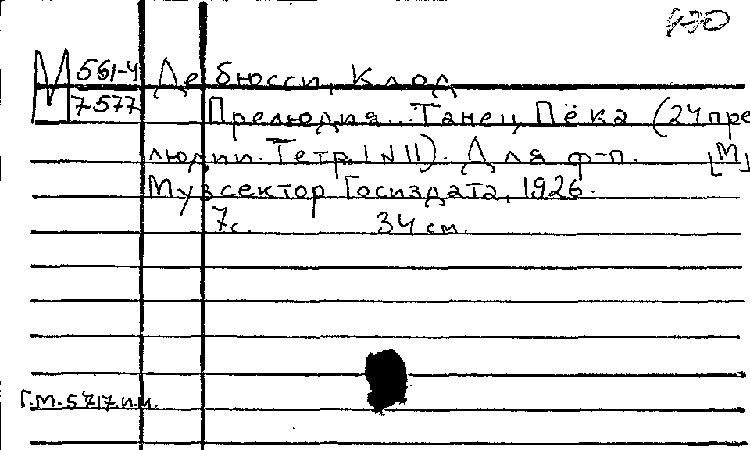 430
М 561-4
7577
Дебюсси, Клод
Прелюдия... Танец Пёка (24 пре
людии. Тетр. I N 11). Для ф-п. [М]
Музсектор Госиздата, 1926.
7с. 34 см.
Г.М.-5717.н.м.